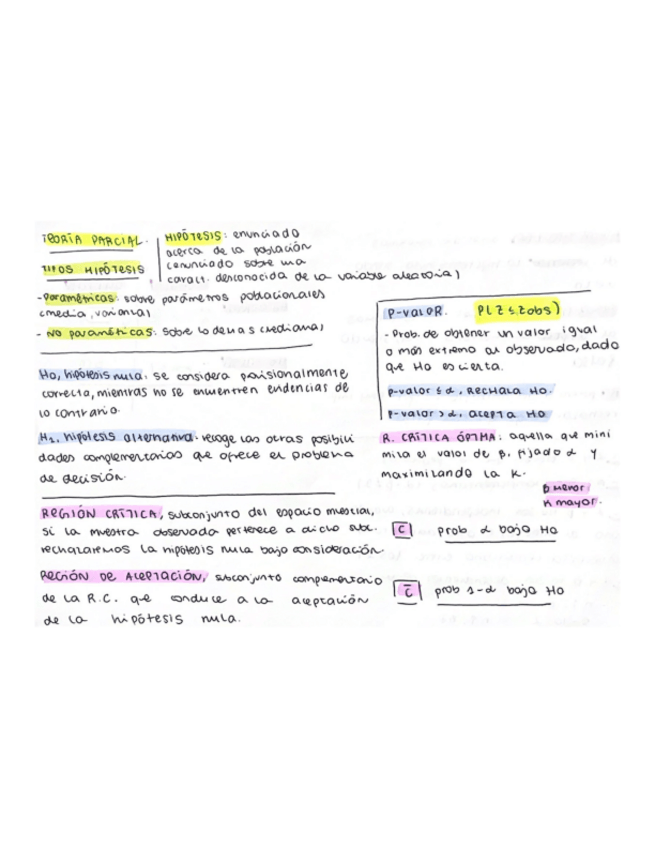 TEORÍA PARCIAL.
TIPOS HIPÓTESIS
HIPÓTESIS: enunciado
acerca de la población
(enunciado sobre una
caract. desconocida de la variable aleatoria)
- Paramétricas: sobre parámetros poblacionales
(media, varianza)
- No paramétricas: sobre lo demás (mediana)
H0, hipótesis nula: se considera provisionalmente
correcta, mientras no se encuentren evidencias de
lo contrario.
H1, hipótesis alternativa: recoge las otras posibili
dades complementarias que ofrece el problema
de decisión.
REGIÓN CRÍTICA, subconjunto del espacio muestral,
si la muestra observada pertenece a dicho sub.
rechazaremos la hipótesis nula bajo consideración.
REGIÓN DE ACEPTACIÓN, subconjunto complementario
de la R.C. que conduce a la aceptación
de la hipótesis nula.
P-VALOR. P(Z ≤ Zobs)
- Prob. de obtener un valor igual
o más extremo al observado, dado
que H0 es cierta.
p-valor ≤ α, RECHAZA H0.
p-valor > α, ACEPTA H0
R. CRÍTICA ÓPTIMA: aquella que mini
miza el valor de β, fijado α y
maximizando la K.
β menor
K mayor.
C prob α bajo H0
C̄ prob 1-α bajo H0